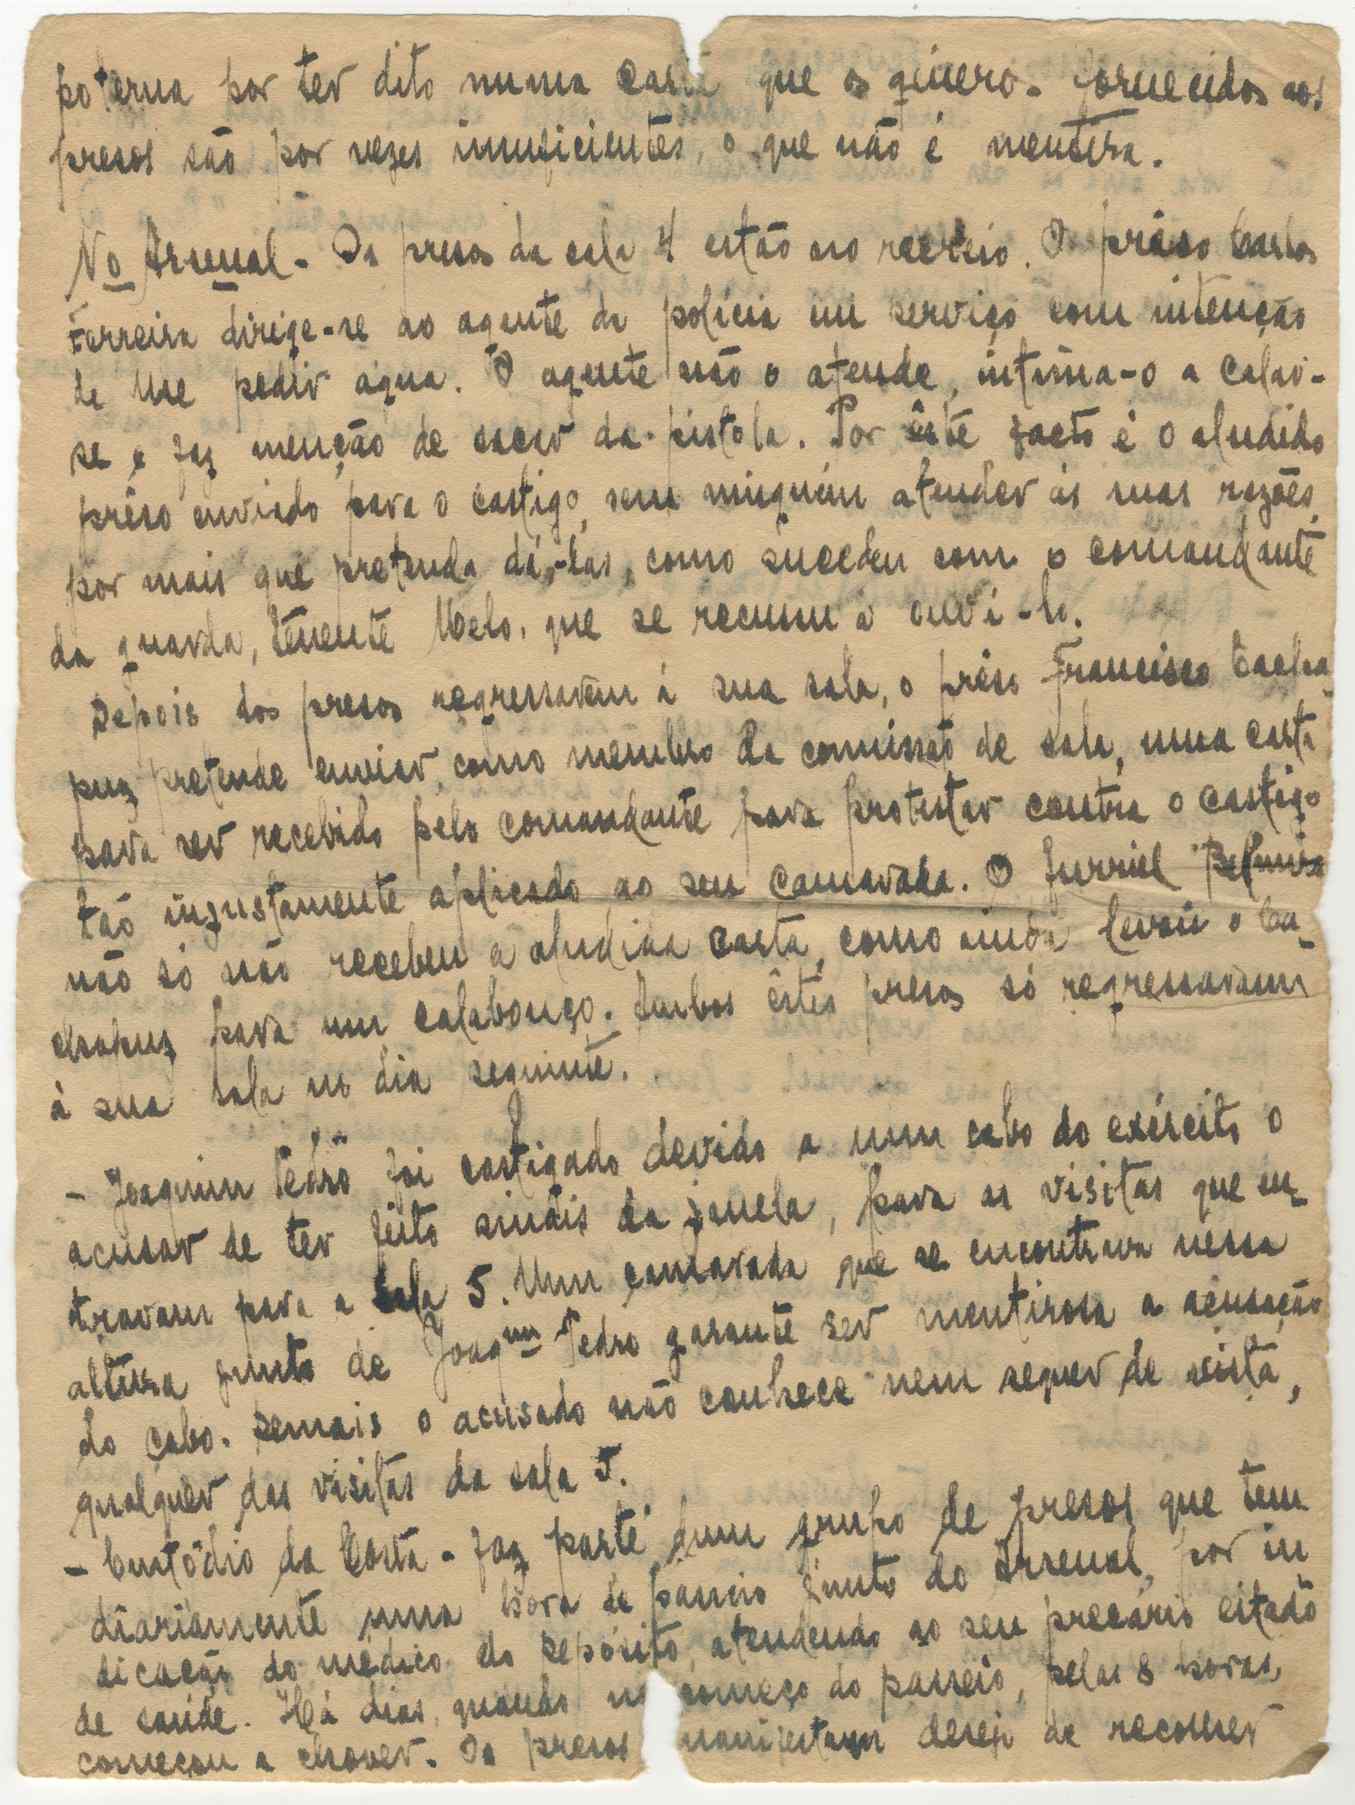 poterna por ter dito numa carta que os género- fornecidos aos
presos são por vezes insuficientes, o que não é mentira.
No Arsenal - Os presos da sala 4 estão no recreio. O prêso Carlos
Ferreira dirige-se ao agente da polícia em serviço com intenção
de lhe pedir agua. O agente não o atende, intima-o a calar-
se e faz menção de sacar da pistola. Por êste facto é o aludido
prêso enviado para o castigo, sem ninguém atender ás suas razões,
por mais que pretenda dá-las, como sucedeu com o comandante
da guarda, tenente Melo, que se recusou a ouvi-lo.
Depois dos presos regressarem á sua sala, o prêso Francisco Cacha
puz pretende enviar, como membro da comissão de sala, uma carta
para ser recebido pelo comandante para protestar contra o castigo
tão injustamente aplicado ao seu camarada. O furriel
não só não recebeu a aludida carta, como ainda levou o Ca-
chapuz para um calabouço. Ambos êstes presos só regressaram
á sua sala no dia seguinte.
- Joaquim Pedro foi castigado devido a um cabo do exército o
acusar de ter feito sinais da janela, para as visitas que en-
travam para a sala 5. Um camarada que se encontrava nessa
altura junto de Joaqᵘᵐ Pedro garante ser mentirosa a acusação
do cabo. Demais o acusado não conhece nem sequer de vista,
qualquer das visitas da sala 5.
- Custódio da Costa - faz parte dum grupo de presos que têm
diariamente uma hora de passeio junto do Arsenal, por in
dicação do médico do Depósito, atendendo ao seu precário estado
de saúde. Há dias, quando no começo do passeio, pelas 8 horas,
começou a chover. Os presos manifestaram desejo de recolher